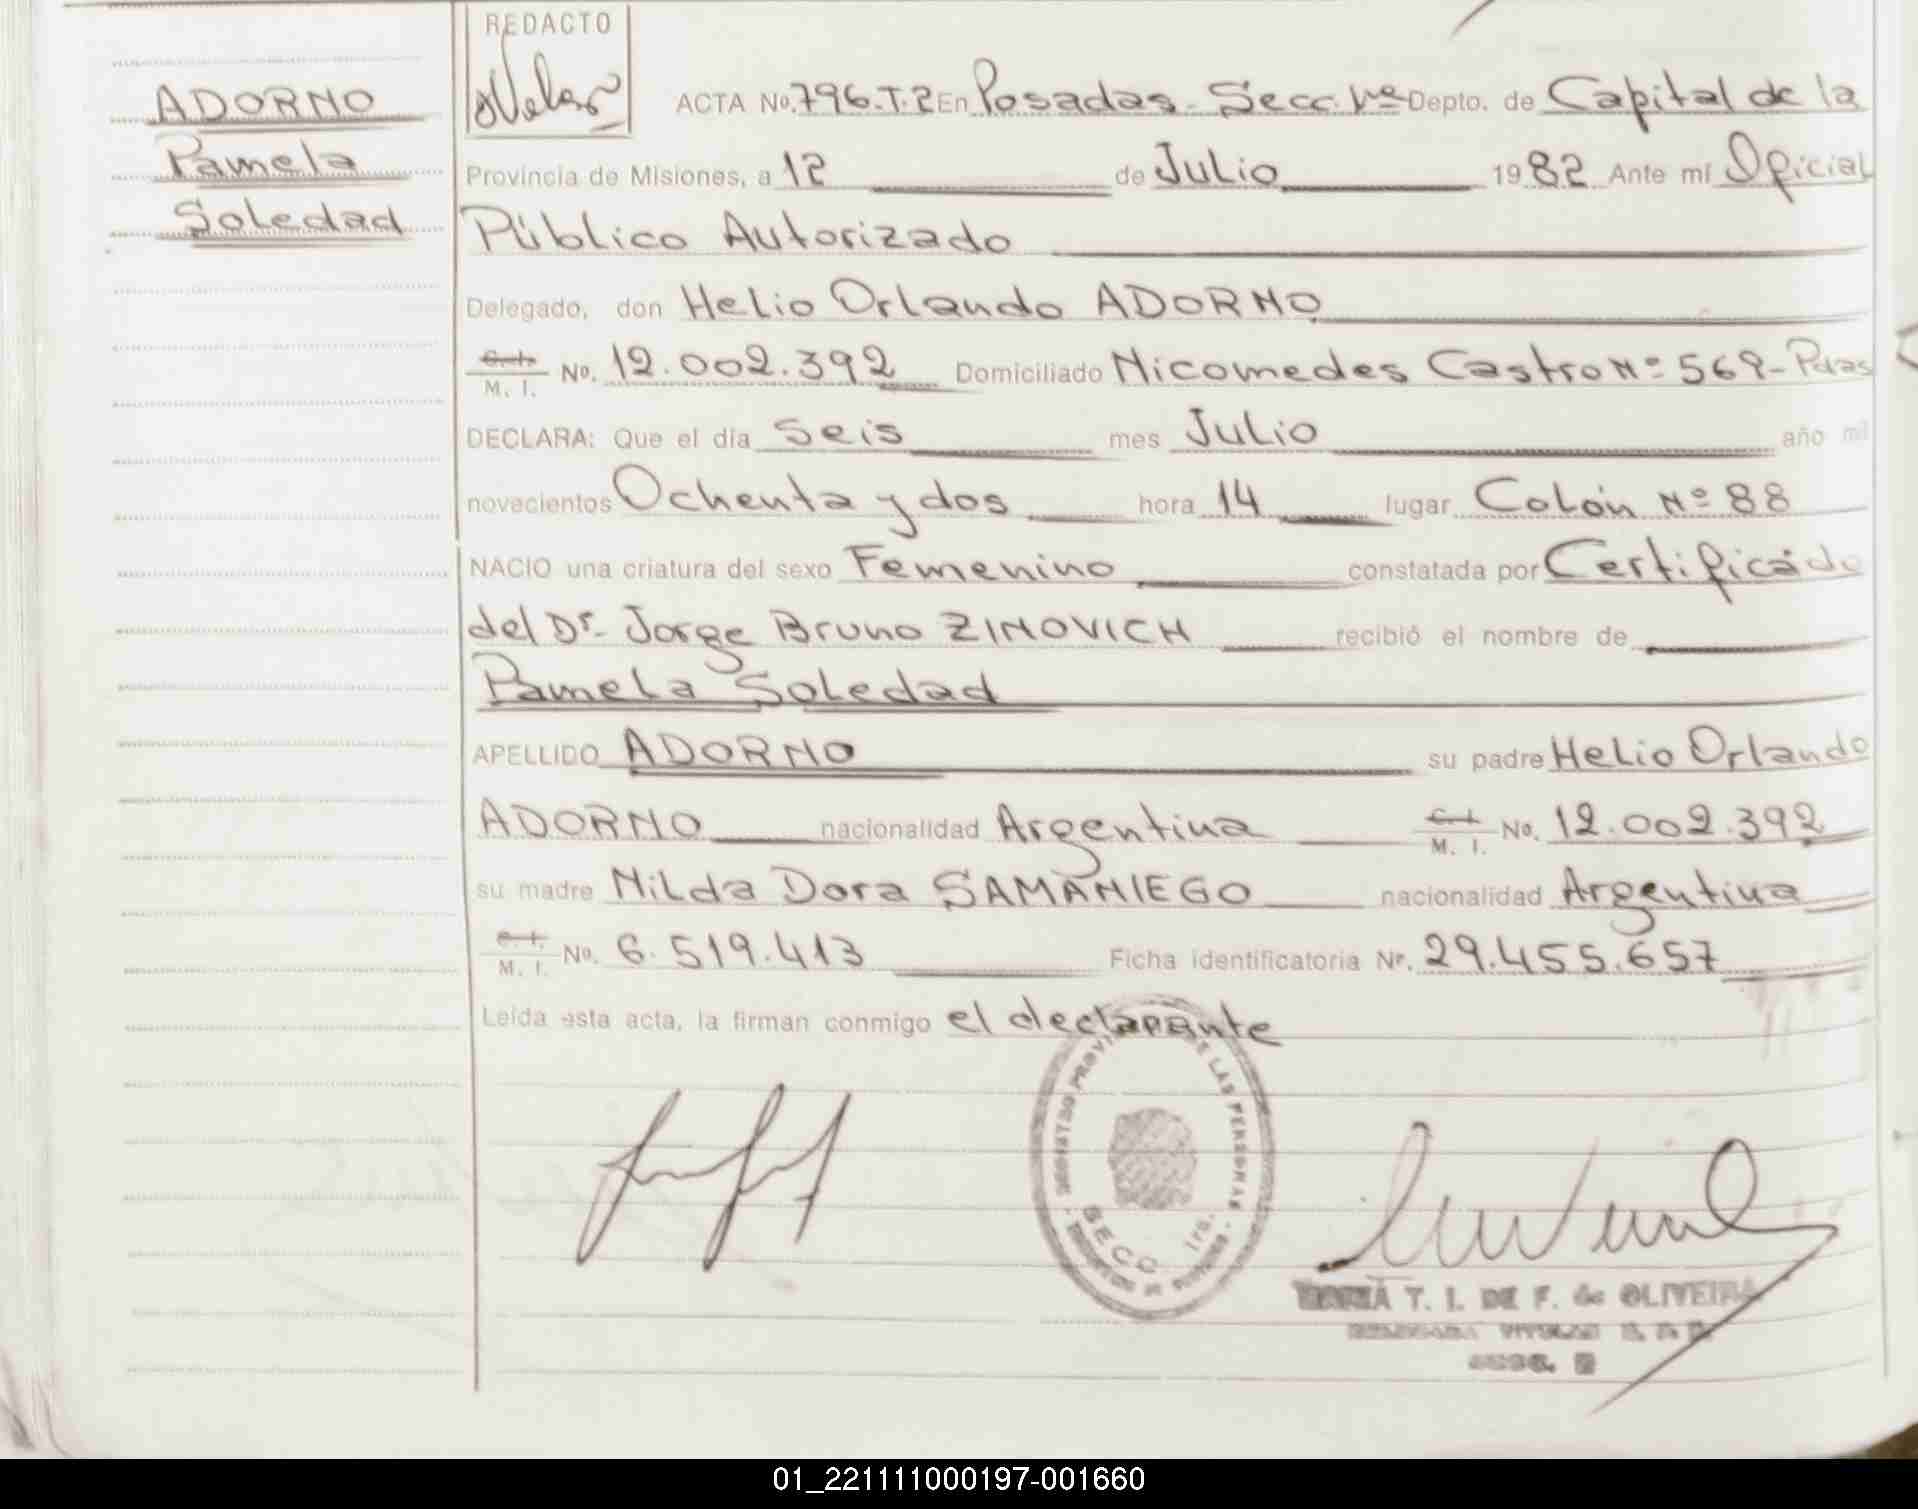 REDACTO
ADORNO
Pamela
Soledad
ACTA No. 796.T.2 En Posadas - Secc. 1ra Depto. de Capital de la
Provincia de Misiones, a 12 de Julio 1982 Ante mí Oficial
Público Autorizado
Delegado, don Helio Orlando ADORNO
C.I. M. I. No. 12.002.392 Domiciliado Nicomedes Castro Nº 569 - Pdas
DECLARA: Que el día Seis mes Julio año mil
novecientos Ochenta y dos hora 14 lugar Colón Nº 88
NACIO una criatura del sexo Femenino constatada por Certificado
del Dr. Jorge Bruno ZINOVICH recibió el nombre de
Pamela Soledad
APELLIDO ADORNO su padre Helio Orlando
ADORNO nacionalidad Argentina C.I. M. I. No. 12.002.392
su madre Nilda Dora SAMANIEGO nacionalidad Argentina
C.I. M. I. No. 6.519.413 Ficha identificatoria Nº. 29.455.657
Leída esta acta, la firman conmigo el declarante
REGISTRO PROVINCIAL DE LAS PERSONAS
SECC. 1ra.
MARIA T. I. DE F. de OLIVEIRA
01_221111000197-001660